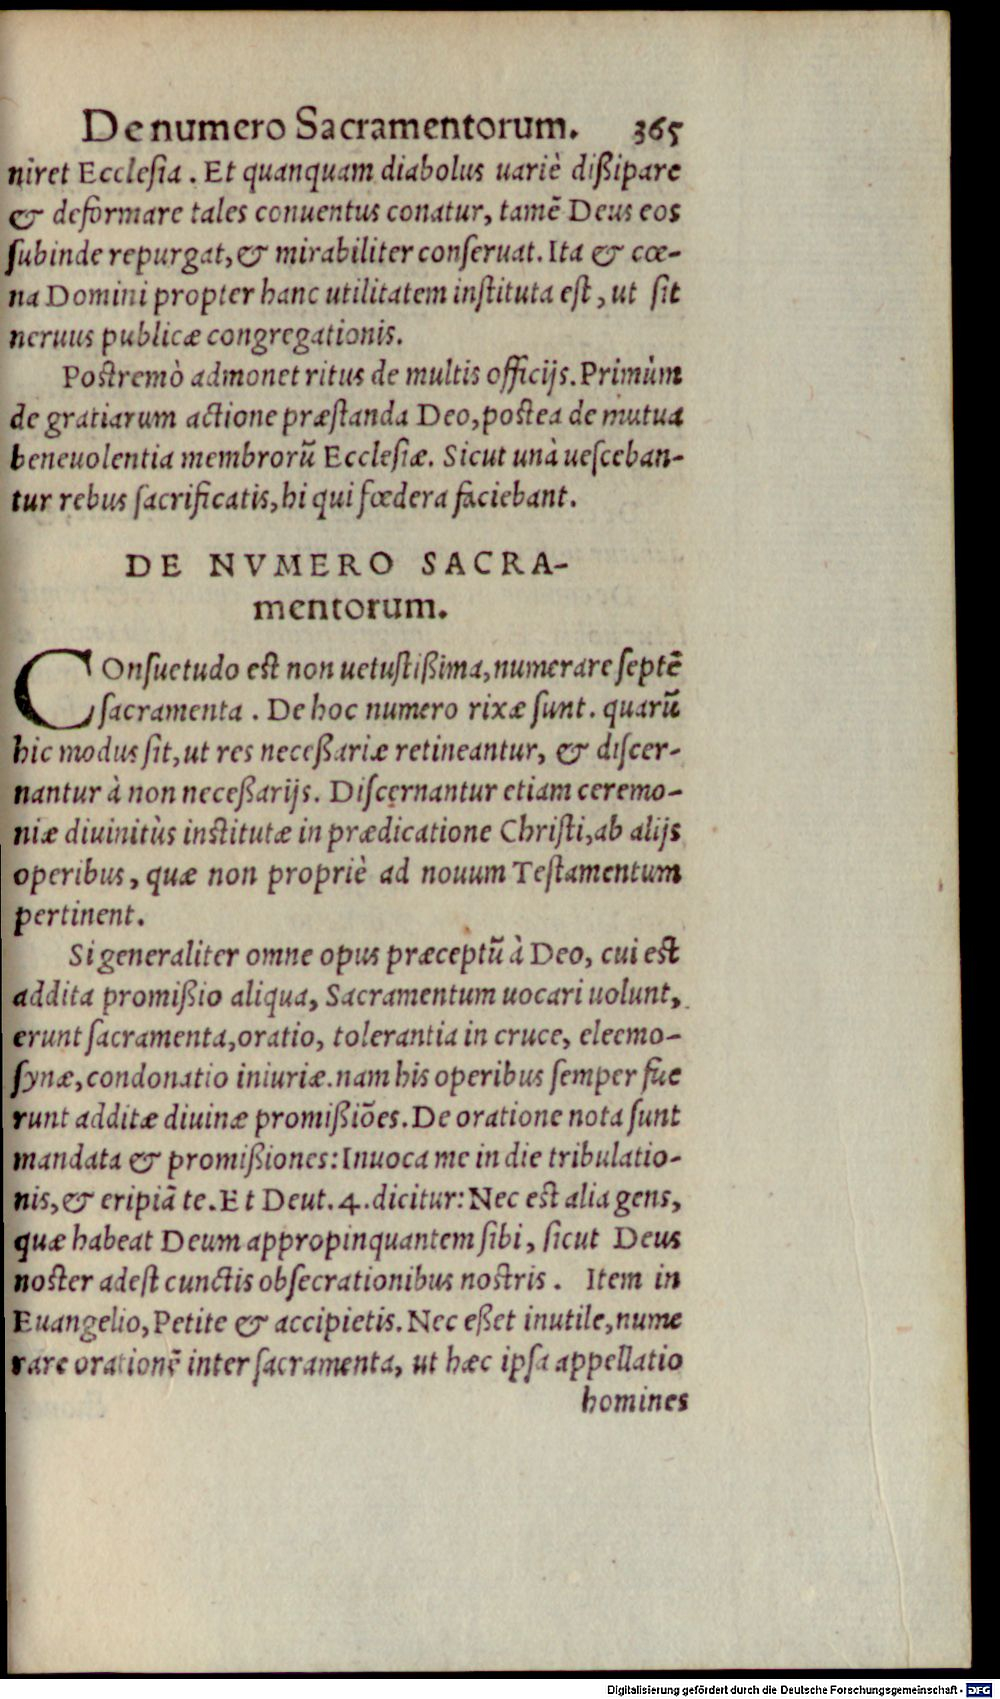 De numero Sacramentorum. 365
niret Ecclesia. Et quanquam diabolus uariè dißipare
& deformare tales conuentus conatur, tamẽ Deus eos
subinde repurgat, & mirabiliter conseruat. Ita & cœ-
na Domini propter hanc utilitatem instituta est, ut sit
neruus publicæ congregationis.
Postremò admonet ritus de multis officijs. Primùm
de gratiarum actione præstanda Deo, postea de mutua
beneuolentia membrorũ Ecclesiæ. Sicut unà uesceban-
tur rebus sacrificatis, hi qui fœdera faciebant.
DE NVMERO SACRA-
mentorum.
COnsuetudo est non uetustißima, numerare septẽ
sacramenta. De hoc numero rixæ sunt. quarũ
hic modus sit, ut res neceßariæ retineantur, & discer-
nantur à non neceßarijs. Discernantur etiam ceremo-
niæ diuinitùs institutæ in prædicatione Christi, ab alijs
operibus, quæ non propriè ad nouum Testamentum
pertinent.
Si generaliter omne opus præceptũ à Deo, cui est
addita promißio aliqua, Sacramentum uocari uolunt,
erunt sacramenta, oratio, tolerantia in cruce, eleemo-
synæ, condonatio iniuriæ. nam his operibus semper fue
runt additæ diuinæ promißiões. De oratione nota sunt
mandata & promißiones: Inuoca me in die tribulatio-
nis, & eripiã te. Et Deut. 4. dicitur: Nec est alia gens,
quæ habeat Deum appropinquantem sibi, sicut Deus
noster adest cunctis obsecrationibus nostris. Item in
Euangelio, Petite & accipietis. Nec eßet inutile, nume
rare orationẽ inter sacramenta, ut hæc ipsa appellatio
homines
Digitalisierung gefördert durch die Deutsche Forschungsgemeinschaft - DFG